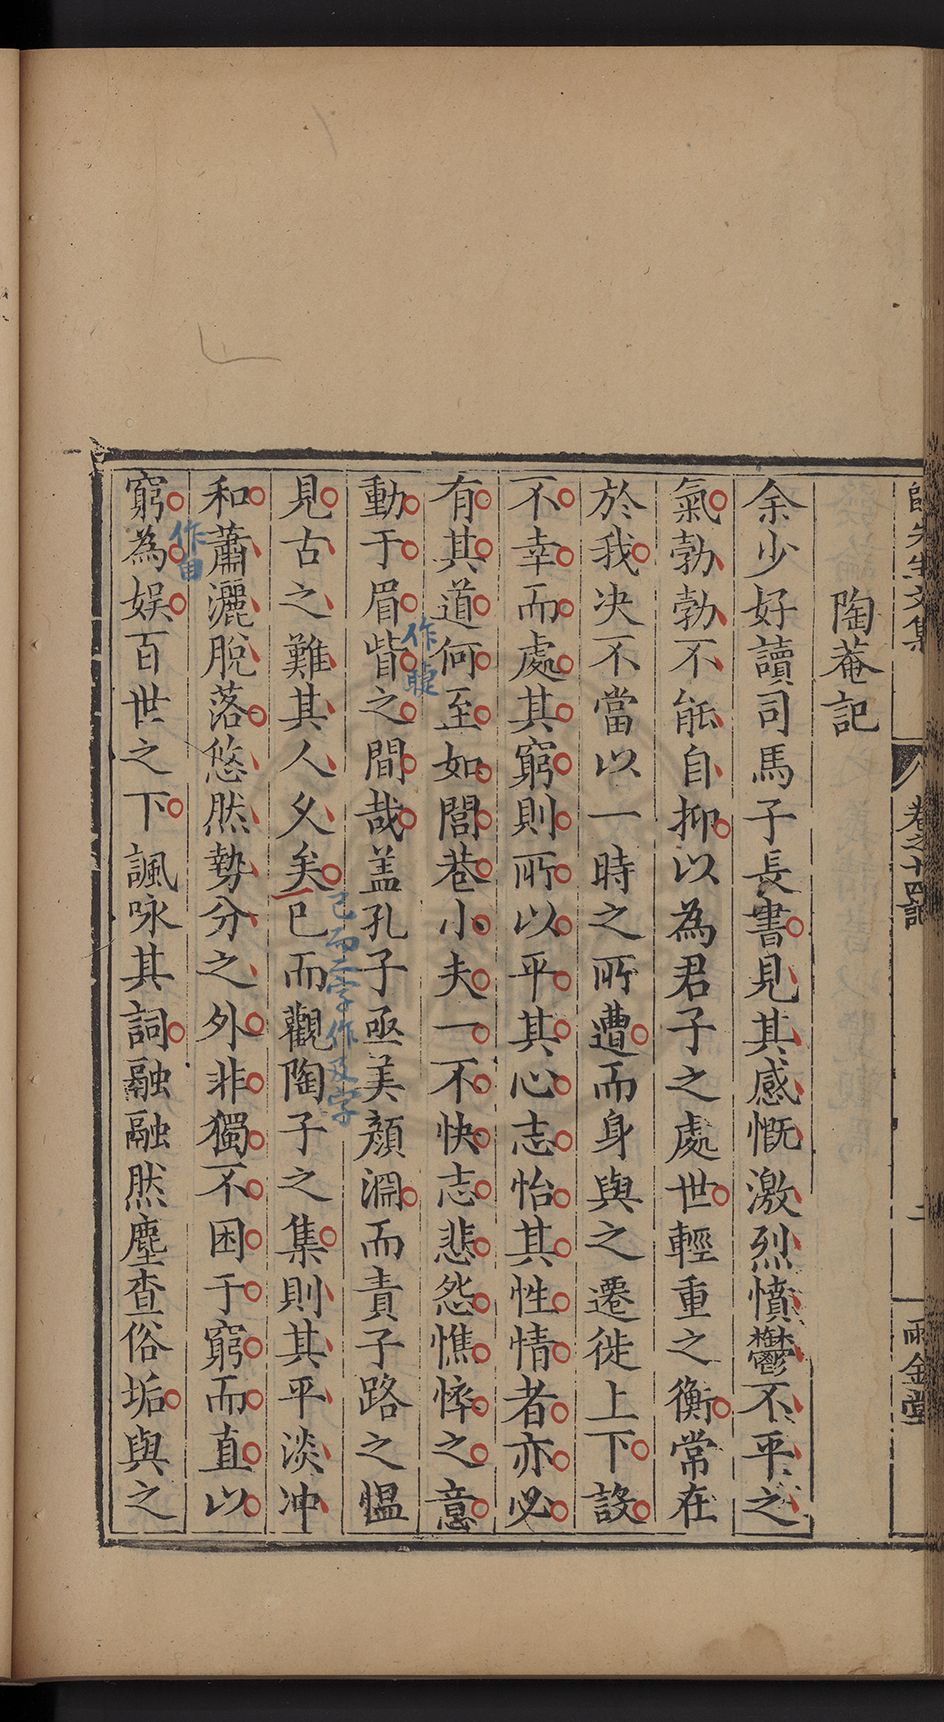 先生文集
卷之十四記
二
雨金堂
陶菴記
余少好讀司馬子長書見其感慨激烈憤鬱不平之
氣勃勃不能自抑以為君子之處世輕重之衡常在
於我决不當以一時之所遭而身與之遷徙上下設
不幸而處其窮則所以平其心志怡其性情者亦必
有其道何至如閭巷小夫一不快志悲怨憔悴之意
動于眉眥之間哉盖孔子亟美顏淵而責子路之愠
作睫
見古之難其人久矣已而觀陶子之集則其平淡冲
已而二字作及字
和蕭灑脫落悠然勢分之外非獨不困于窮而直以
窮為娱百世之下諷咏其詞融融然塵查俗垢與之
作由